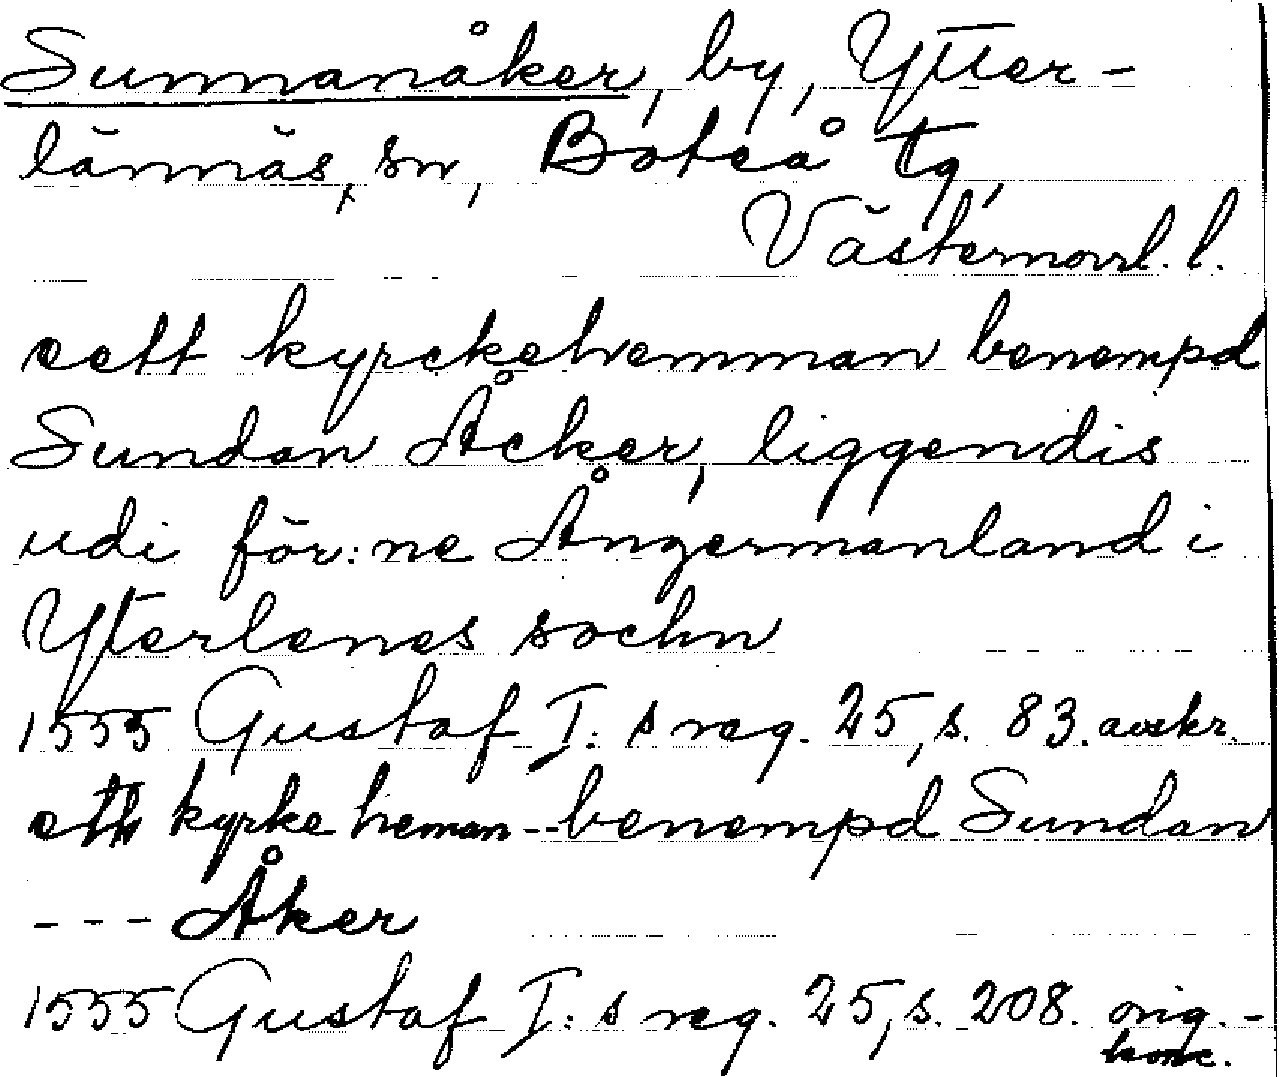 Sunnanåker, by, Ytter-
lännäs, sn, Boteå tg,
Västernorrl. l.
eett kyrckehemman benempd
Sundan Åcker, liggendis
udi för:ne Ångermanland i
Ytterlenes sochn
1555 Gustaf I:s reg. 25, s. 83. avskr.
eth kyrke heman -- benempd Sundan
--- Åker
1555 Gustaf I:s reg. 25, s. 208. orig.-
konc.